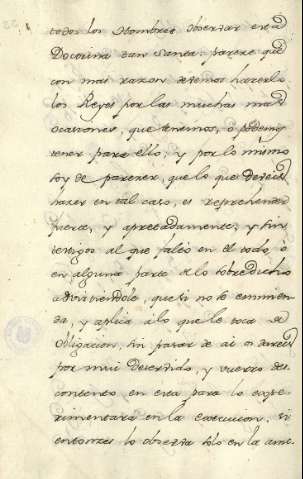 todos los Hombres observar esta
Doctrina tan Santa: parece que
con mas razon devemos hazerlo
los Reyes por las muchas mas
ocasiones, que tenemos, o podemos
tener para ello, y por lo mismo
soy de parecer, que lo que deveis
hazer en tal caso, es reprehender
fuerte, y apretadamente, y sin
testigos al que faltó en el todo, o
en alguna parte a lo sobredicho
advirtiendole, que si no se enmien
da, y aplica a lo que le toca de
obligacion, sin pasar de ai os dareis
por mui deservido, y vuestro des
contento en esta parte lo expe
rimentará en la execucion. si
entonces lo observa solo en la ame